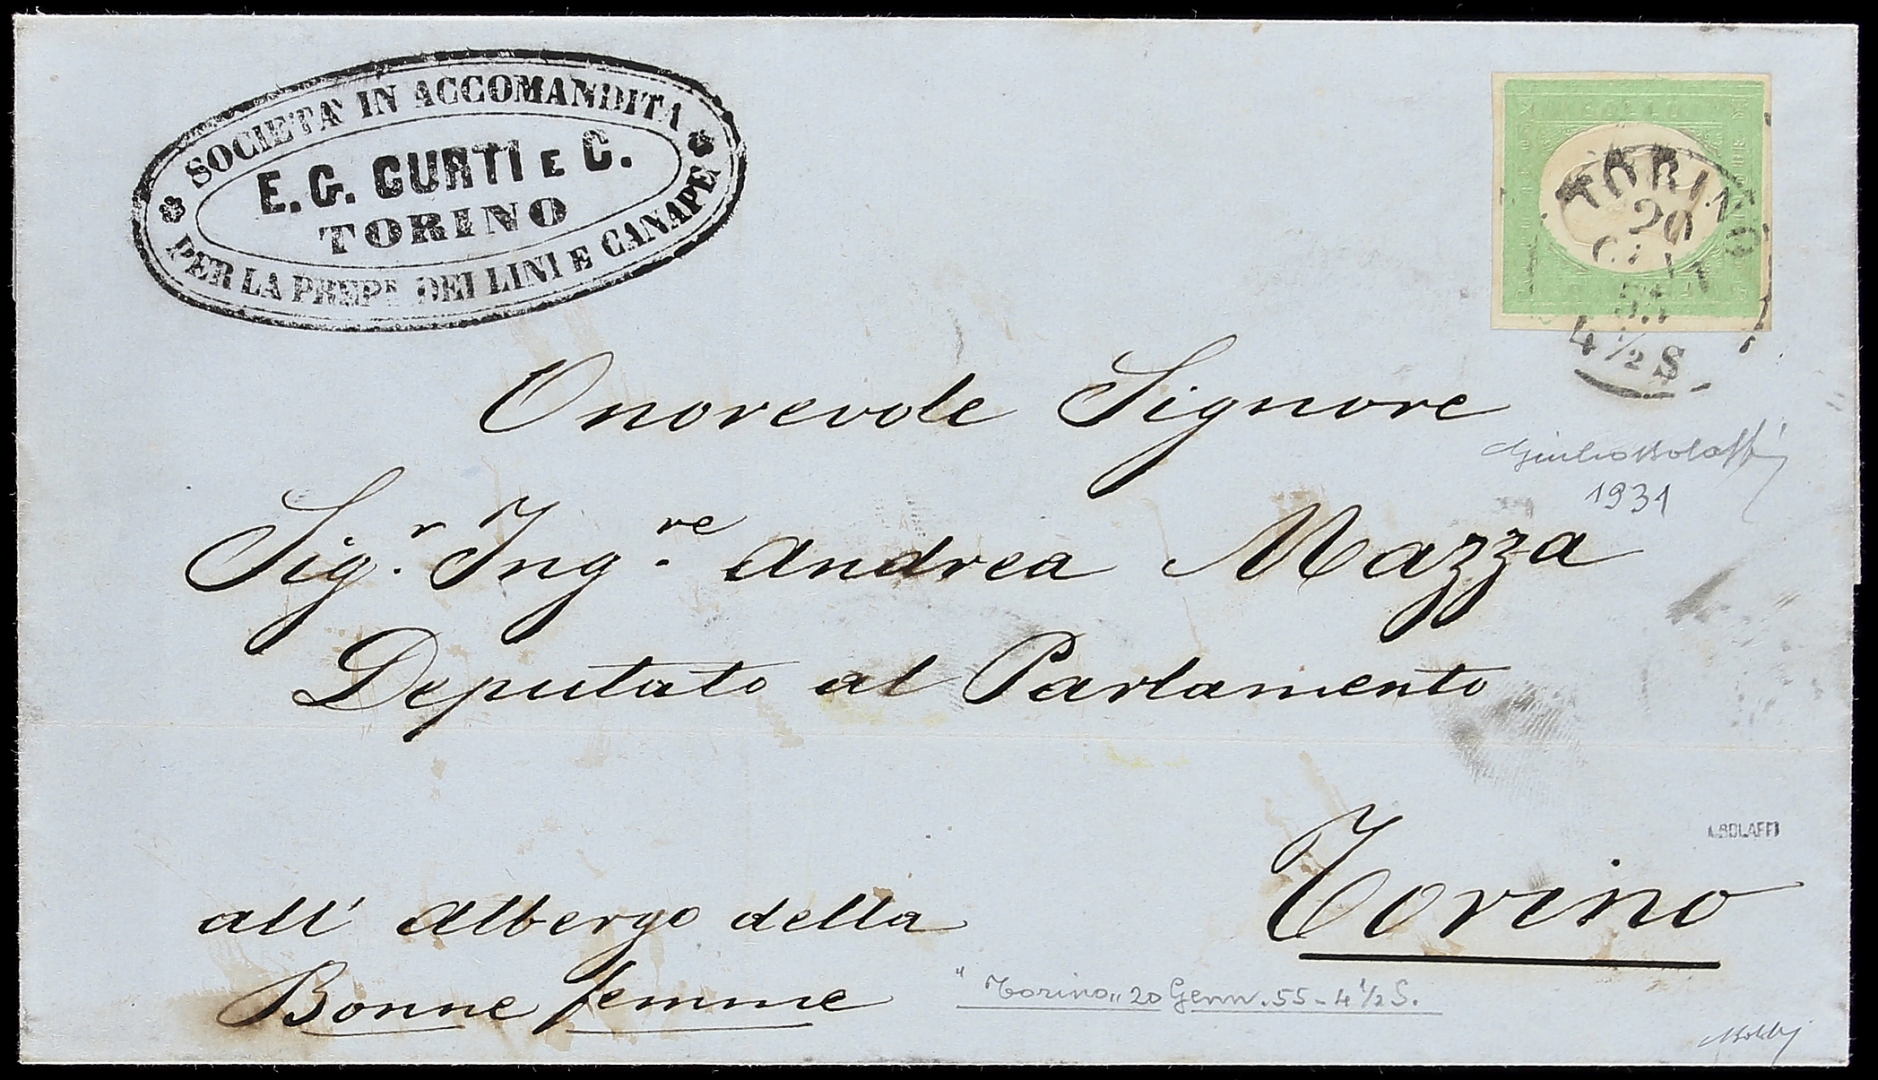 SOCIETÀ IN ACCOMANDITA
E. G. CURTI E C.
TORINO
PER LA PREP. DEI LINI E CANAPE
TORINO
20
4 1/2 S
Onorevole Signore
Giulio Bolaffi
1931
Sig.r Ing.re Andrea Mazza
Deputato al Parlamento
A.BOLAFFI
Torino
all' Albergo della
Bonne femme
"Torino" 20 Genn. 55 - 4 1/2 S.